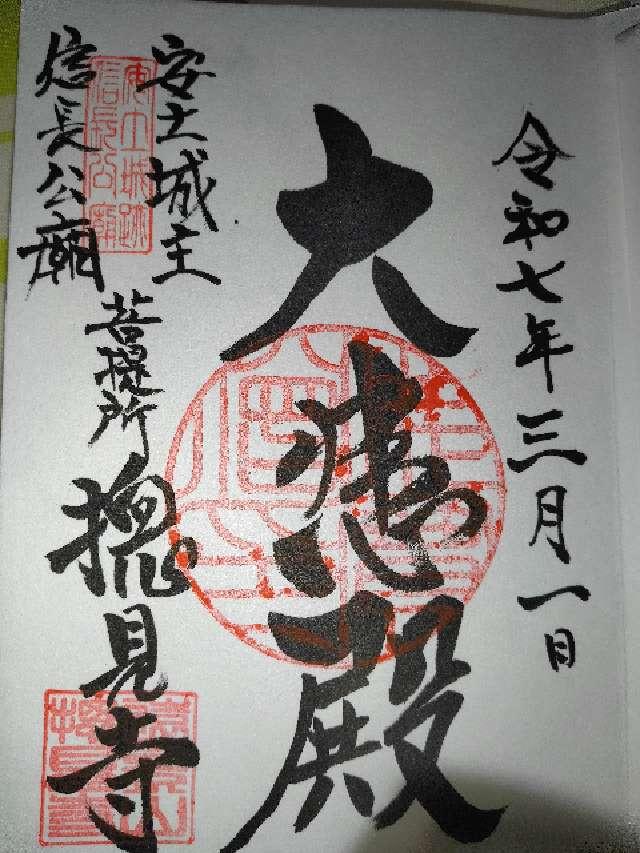 令和七年三月一日
大悲殿
安土城主
信長公廟
菩提所
摠見寺
安土城跡
信長公廟